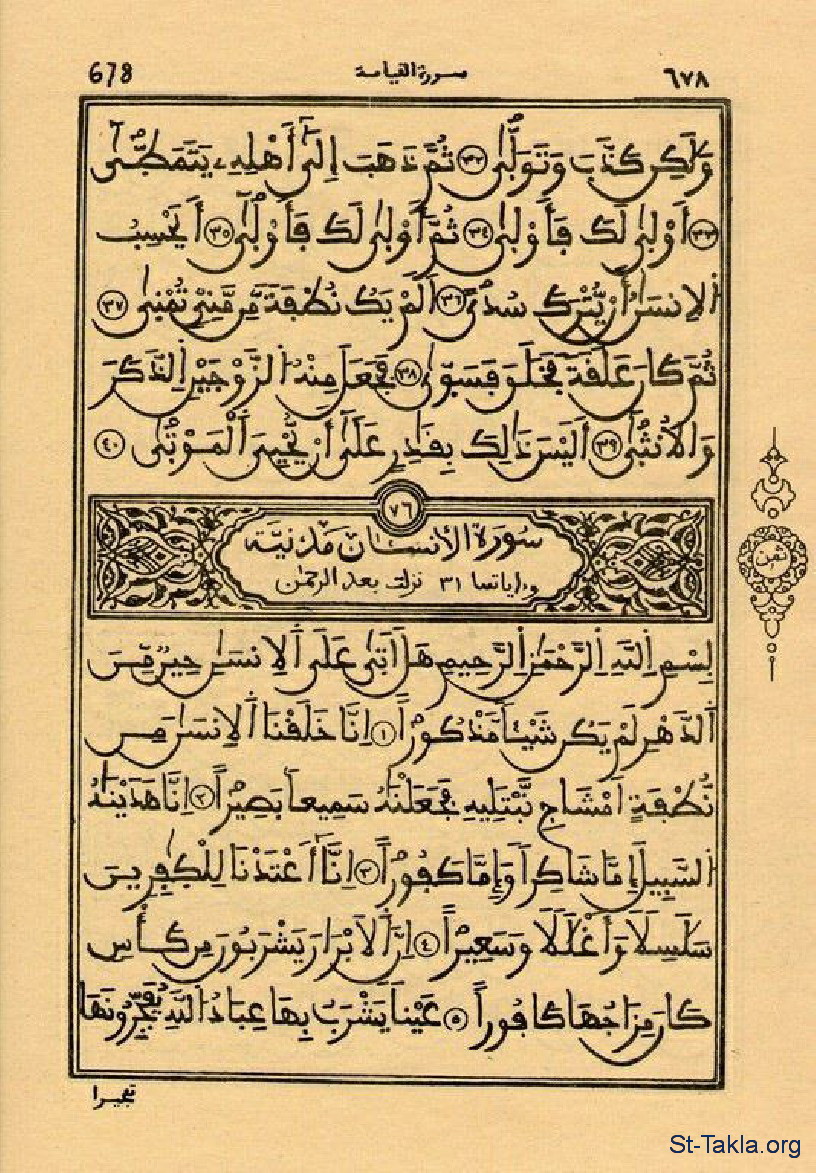 678 سورة القيامة ٦٧٨
وَلَٰكِن كَذَّبَ وَتَوَلَّىٰ ٣٢ ثُمَّ ذَهَبَ إِلَىٰ أَهْلِهِ يَتَمَطَّىٰ
٣٣ أَوْلَىٰ لَكَ فَأَوْلَىٰ ٣٤ ثُمَّ أَوْلَىٰ لَكَ فَأَوْلَىٰ ٣٥ أَيَحْسِبُ
اَلِانسَٰنُ أَنْ يُّتْرَكَ سُدًى ٣٦ أَلَمْ يَكُ نُطْفَةً مِّن مَّنِيٍّ تُمْنَىٰ ٣٧
ثُمَّ كَانَ عَلَقَةً فَخَلَقَ فَسَوَّىٰ ٣٨ فَجَعَلَ مِنْهُ اُلزَّوْجَيْنِ اِلذَّكَرَ
وَالُانثَىٰ ٣٩ أَلَيْسَ ذَٰلِكَ بِقَٰدِرٍ عَلَىٰ أَنْ يُّحْيِيَ اَلْمَوْتَىٰ ٤٠
٧٦
سورة الإنسان مدنية
وءاياتها ٣١ نزلت بعد الرحمن
ثمن
بِسْمِ اِللَّهِ اِلرَّحْمَٰنِ اِلرَّحِيمِ هَلَ اَتَىٰ عَلَى اَلِانسَٰنِ حِينٌ مِّنَ
اَلدَّهْرِ لَمْ يَكُن شَيْئاً مَّذْكُوراً ١ اِنَّا خَلَقْنَا اَلِانسَٰنَ مِن
نُّطْفَةٍ اَمْشَاجٍ نَّبْتَلِيهِ فَجَعَلْنَٰهُ سَمِيعاً بَصِيراً ٢ اِنَّا هَدَيْنَٰهُ
اُلسَّبِيلَ إِمَّا شَاكِراً وَإِمَّا كَفُوراً ٣ اِنَّا أَعْتَدْنَا لِلْكَٰفِرِينَ
سَلَٰسِلاً وَأَغْلَٰلاً وَسَعِيراً ٤ اِنَّ اَلَابْرَارَ يَشْرَبُونَ مِن كَأْسٍ
كَانَ مِزَاجُهَا كَافُوراً ٥ عَيْناً يَشْرَبُ بِهَا عِبَادُ اُللَّهِ يُفَجِّرُونَهَا
تفجيرا
St-Takla.org